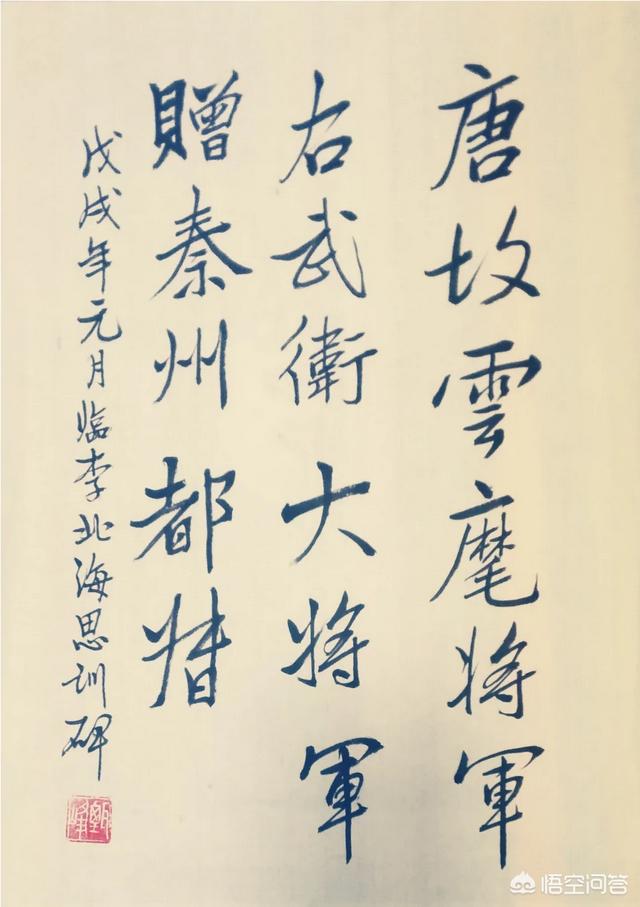 唐故雲麾將軍
右武衛大將軍
贈秦州都督
戊戌年元月臨李北海思訓碑
悟空问答